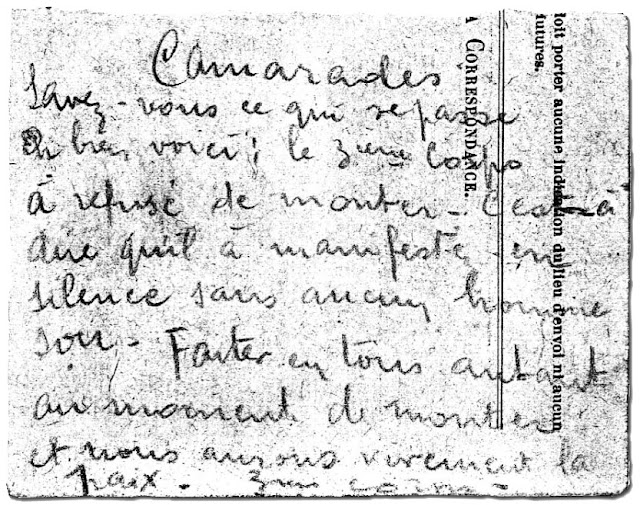 Camarades
Savez-vous ce qui se passe
Eh bien voici : le 3ième Corps
à refusé de monter - C'est-à
dire qu'il à manifesté en
silence sans aucun homme
sou - Faiter en tous autant
au moment de monter
et nous aurons vivement la
paix - 3ième corps -
CORRESPONDANCE.
doit porter aucune indication du lieu d'envoi ni aucun
futures.